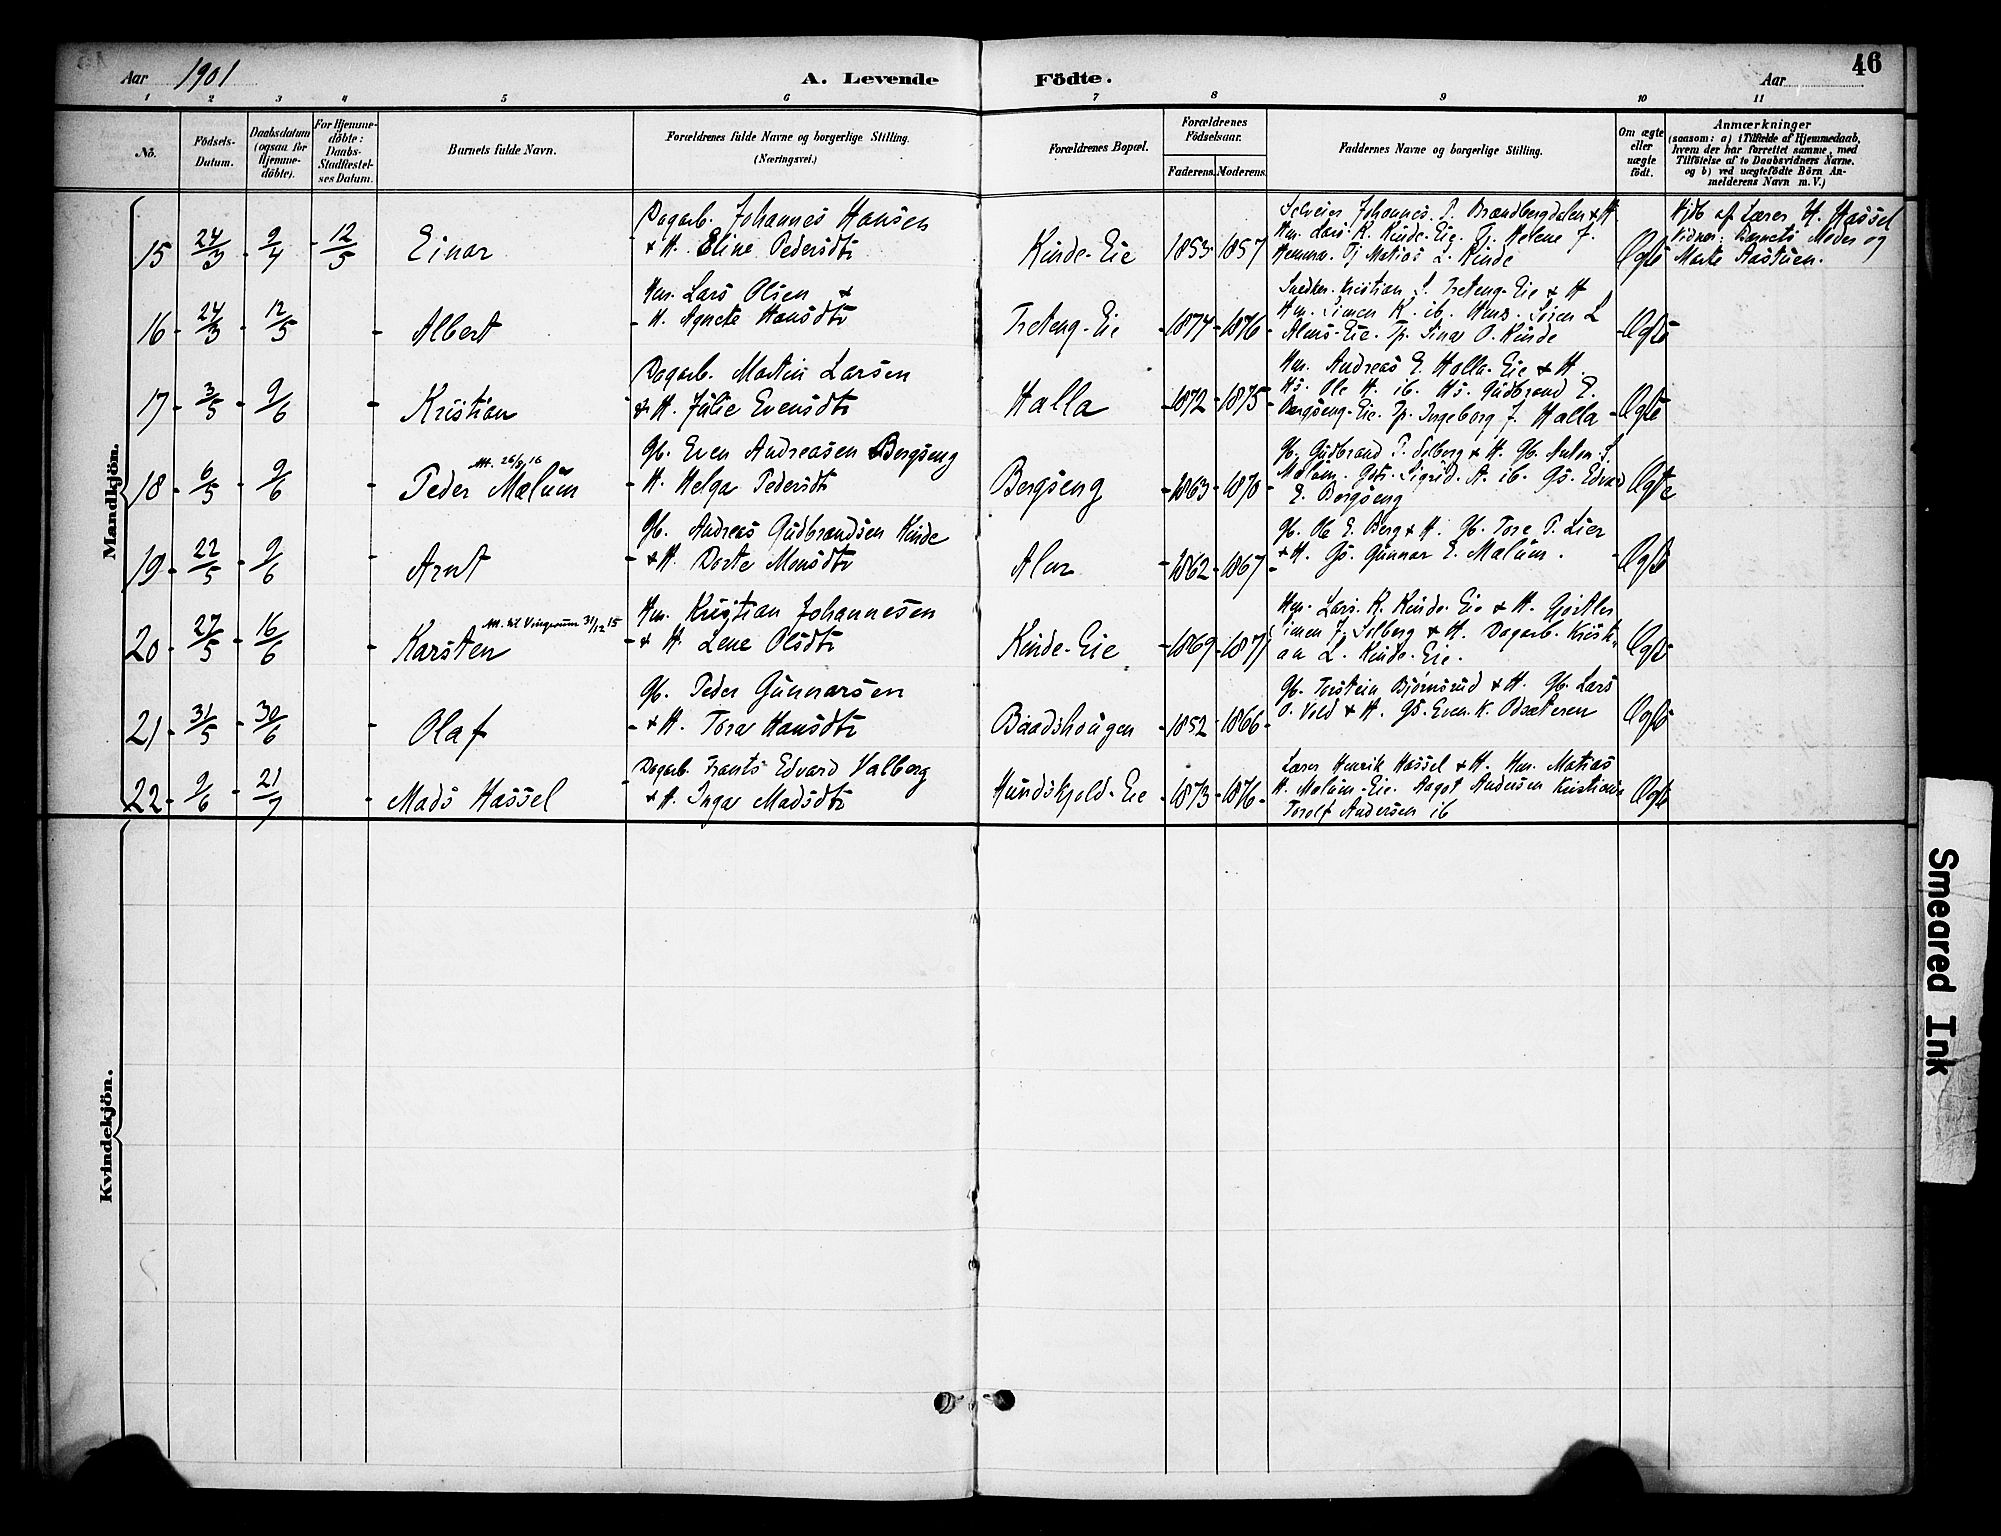 Aar 1901
A. Levende Födte.
Aar
46
1 2 3 4 5 6 7 8 9 10 11
No.
Födsels-
Datum.
Daabsdatum
(ogsaa for
Hjemme-
döbte).
For Hjemme-
döbte:
Daabs-
Stadfæstel-
ses Datum.
Barnets fulde Navn.
Forældrenes fulde Navne og borgerlige Stilling.
(Næringsvei.)
Forældrenes Bopæl.
Forældrenes
Födselsaar.
Faderens. Moderens.
Faddernes Navne og borgerlige Stilling.
Om ægte
eller
uægte
födt.
Anmærkninger
(saasom: a) i Tilfælde af Hjemmedaab,
hvem der har forrettet samme, med
Tilföielse af to Daabsvidners Navne.
og b) ved uægtefödte Börn An-
melderens Navn m. V.)
Mandkjön.
15 24/3 9/4 12/5 Einar
Dagarb. Johannes Hansen
& H. Eline Pedersdtr
Kinde-Eie 1853 1857
Selveier Johannes P. Brandbergdalen & H
Hm. Lars K. Kinde-Eie. Pi. Helene J.
Hemma. Pj Matias L. Kinde
Ægte
Hjdb af Lærer H. Hassel
Vidner: Barnets Moder og
Marte Aastuen.
16 24/3 12/5 Albert
Hm. Lars Olsen &
H. Agnete Hansdtr
Treteng-Eie 1874 1876
Snedker Kristian S. Treteng-Eie & H
Hm. Simen K. ib. Hms. Søien L
Alms-Eie. Tp. Sina O. Kinde
Ægte
17 3/5 9/6 Kristian
Dagarb. Martin Larsen
& H. Julie Evensdtr
Halla 1872 1875
Hm. Andreas E. Halla-Eie & H.
Hs. Ole H. ib. Hs. Gudbrand E.
Bergseng-Eie. Tp. Ingeborg J. Halla
Ægte
18 6/5 9/6 Peder Mælum
Att. 26/8 16
Gb. Even Andreasen Bergseng
H. Helga Pedersdtr
Bergseng 1863 1870
Gb. Gudbrand P. Selberg & H. Gb. Anton S.
Mælum. Gdtr. Sigrid A. ib. Gs. Edvard
E. Bergseng
Ægte
19 22/5 9/6 Arnt
Gb. Andreas Gudbrandsen Kinde
& H. Dorte Monsdtr
Alm 1862 1867
Gb. Ole E. Berg & H. Gb. Tore P. Lier
& H. Gs. Gunnar E. Mælum.
Ægte
20 27/5 16/6 Karsten
Att. til Vingerum 31/12 15
Hm. Kristian Johannesen
& H. Lene Olsdtr
Kinde-Eie 1869 1871
Hm. Lars K. Kinde-Eie & H. Gjørtler
Simen J. Selberg & H. Dagarb. Kristi-
an L. Kinde-Eie.
Ægte
21 31/5 30/6 Olaf
Gb. Peder Gunnarsen
& H. Tora Hansdtr
Baadshaugen 1852 1866
Gb. Torstein Bjørnsrud & H. Gb. Lars
O. Vold & H. Gs. Even K. Odsæteren
Ægte
22 9/6 21/7 Mads Hassel
Dagarb. Frants Edvard Valberg
& H. Inga Madsdtr
Hundskjold-Eie 1873 1876
Lærer Henrik Hassel & H. Hm. Matias
H. Mælum-Eie. Aagot Andersen Kristiania
Torolf Andersen ib
Ægte
Kvindekjön.
Smeared Ink